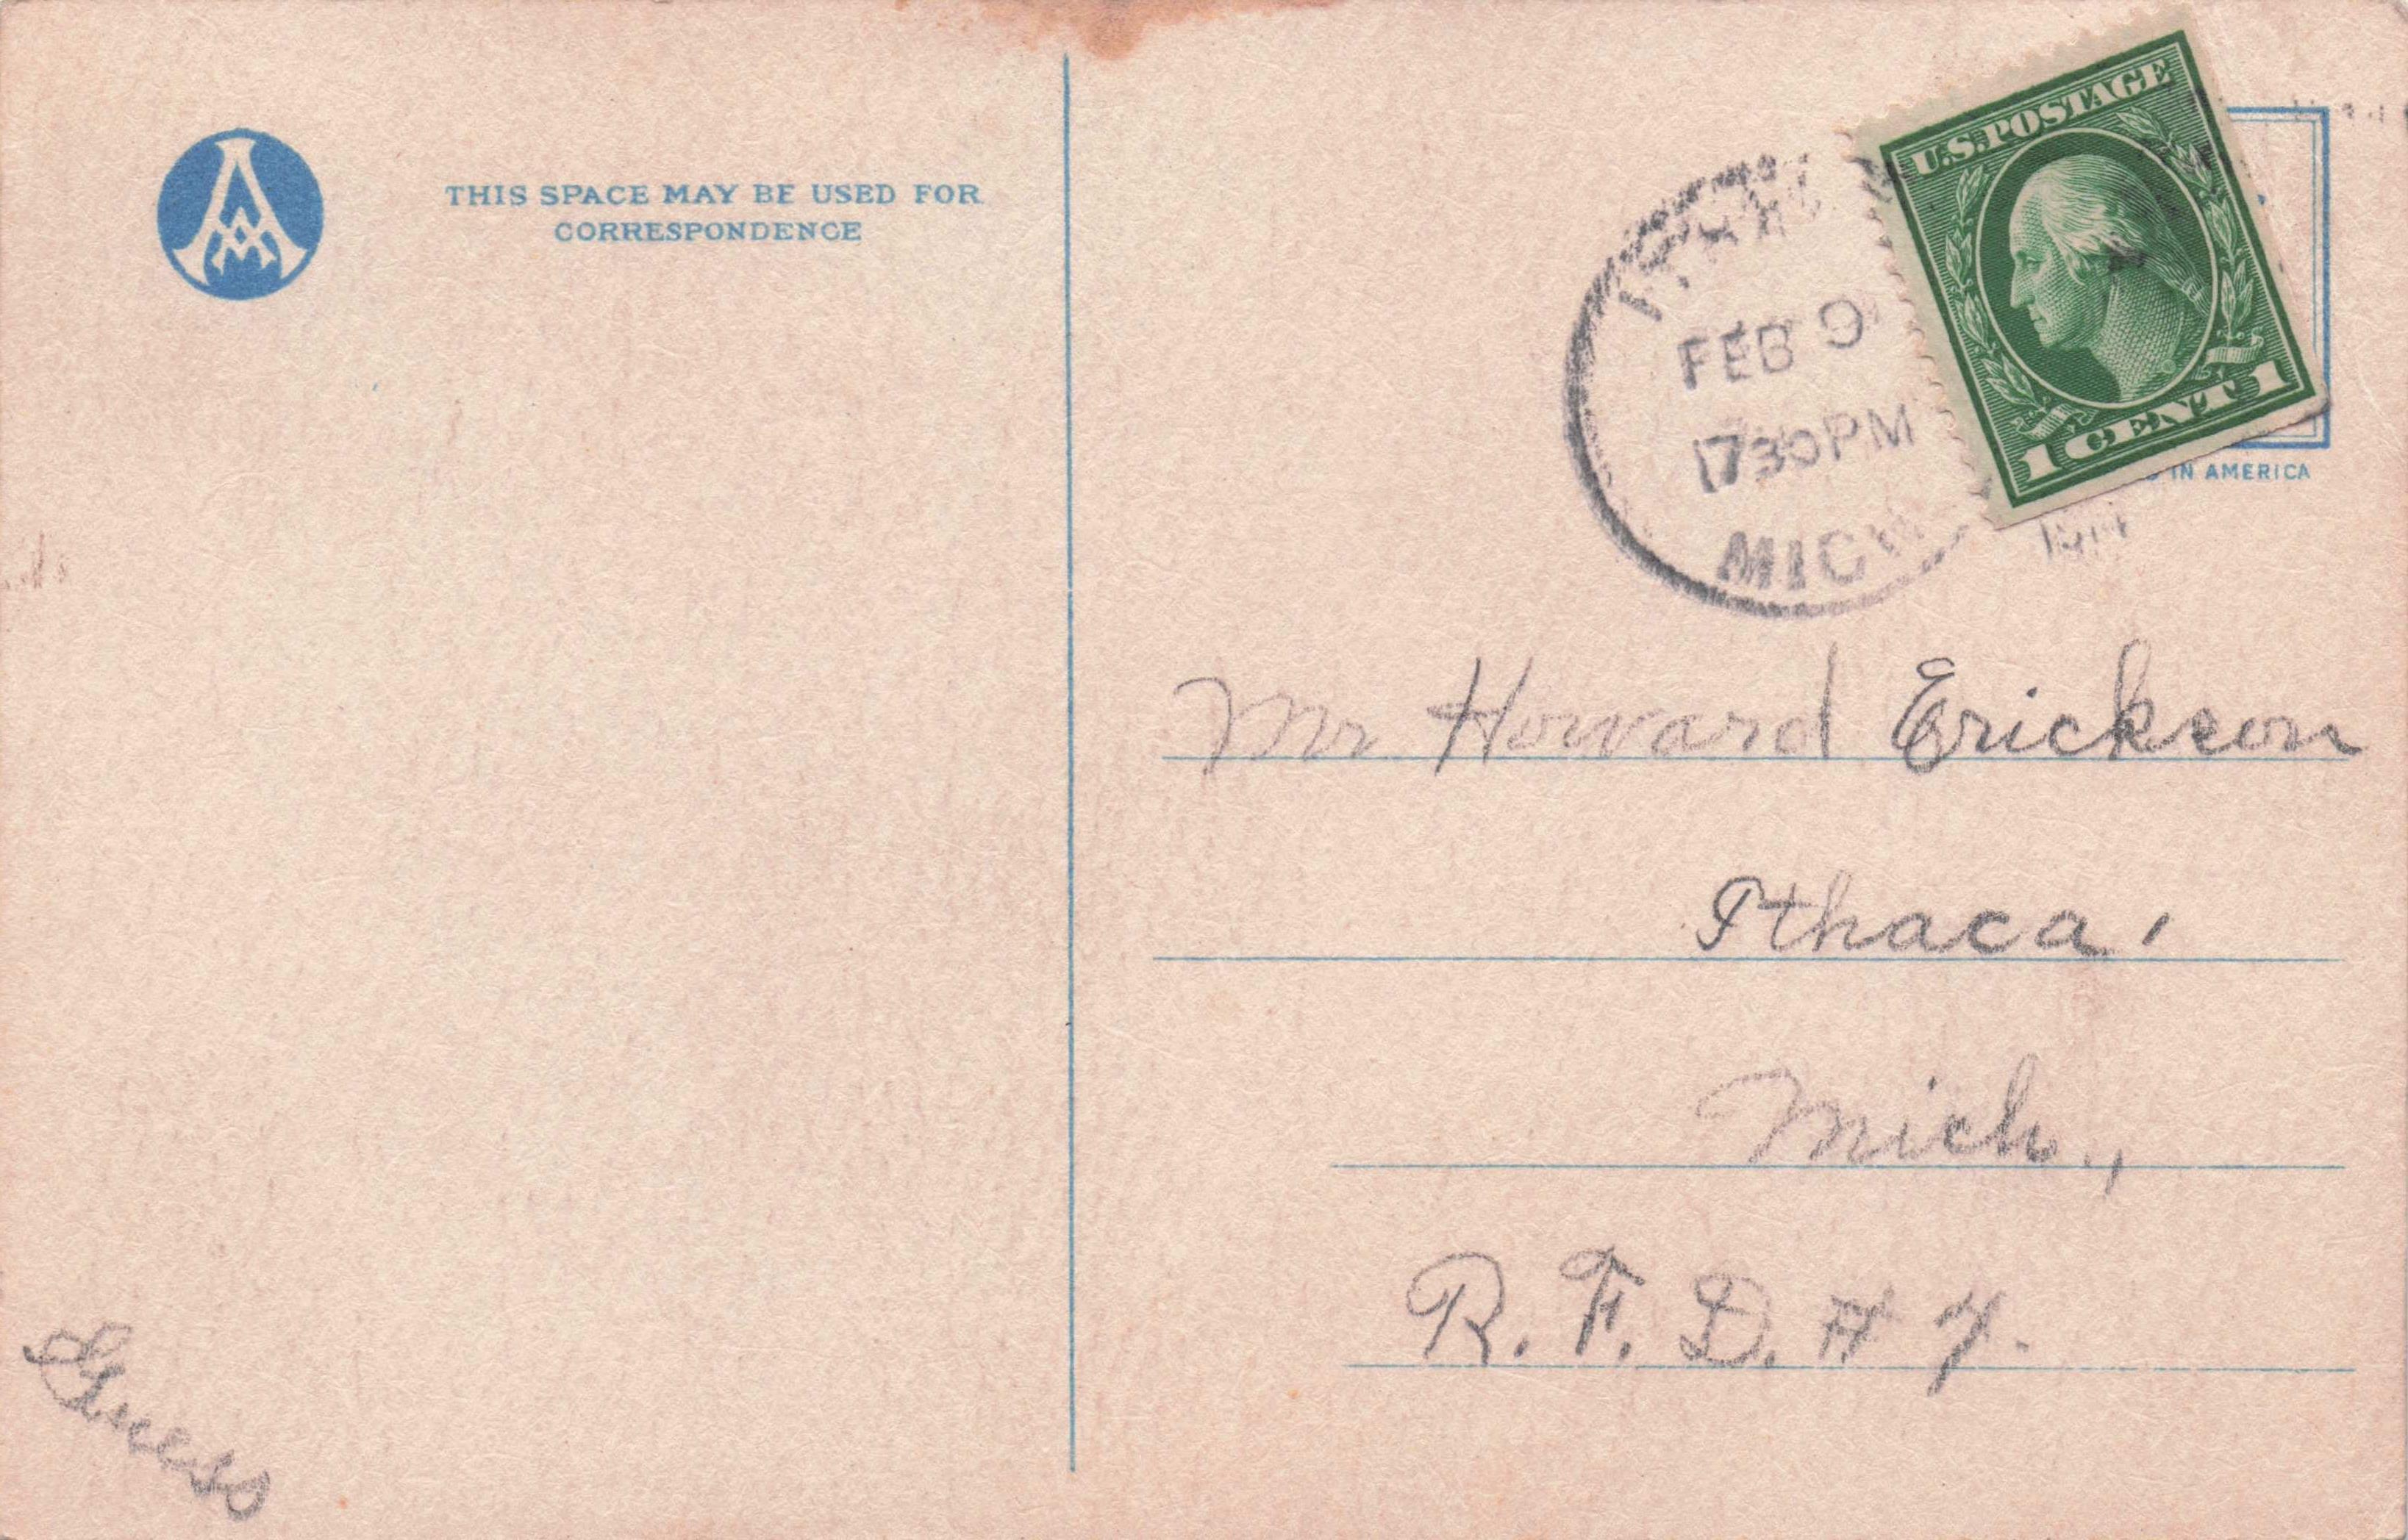 THIS SPACE MAY BE USED FOR
CORRESPONDENCE
U.S. POSTAGE
1 CENT 1
FEB 9
730 PM
MICH
IN AMERICA
Mr Howard Erickson
Ithaca,
Mich.,
R. F. D. # 7.
Guess